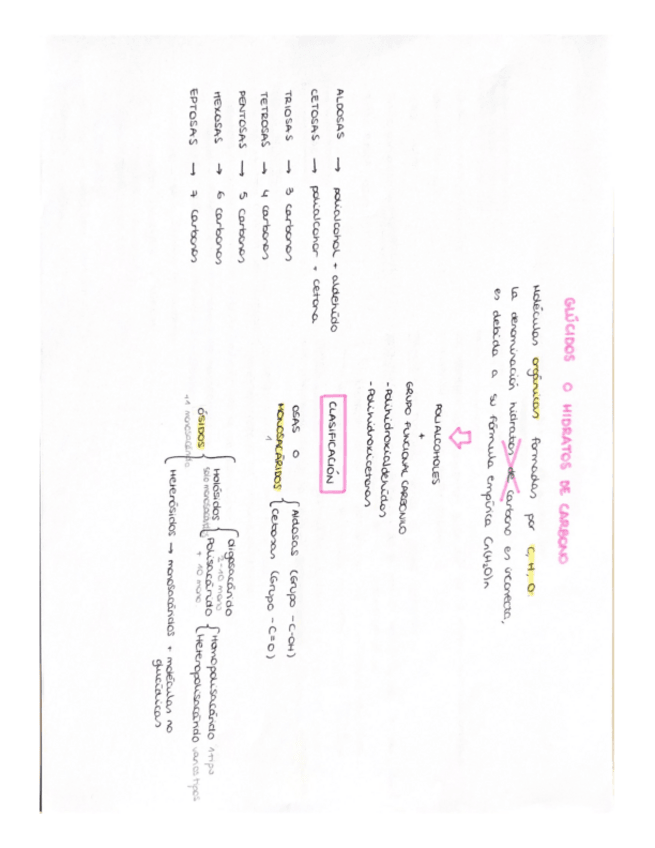 GLÚCIDOS O HIDRATOS DE CARBONO
Moléculas orgánicas formadas por C, H, O.
La denominación hidratos de carbono es incorrecta,
es debida a su fórmula empírica Cn(H₂O)n
POLIALCOHOLES
+
GRUPO FUNCIONAL CARBONILO
- Polihidroxialdehidos
- Polihidroxicetonas
ALDOSAS → polialcohol + aldehído
CETOSAS → polialcohor + cetona
TRIOSAS → 3 carbonos
TETROSAS → 4 carbonos
PENTOSAS → 5 carbonos
HEXOSAS → 6 carbonos
EPTOSAS → 7 carbonos
CLASIFICACIÓN
OSAS O
MONOSACÁRIDOS
1
Aldosas (Grupo - C-OH)
Cetosas (Grupo - C=O)
ÓSIDOS
+1 monosacárido
Holósidos
solo monosacárido
Oligosacárido
2-10 mono
Polisacárido
+ 10 mono
Homopolisacárido 1 tipo
Heteropolisacárido varios tipos
Heterósidos → monosacáridos + moléculas no
glucídicas